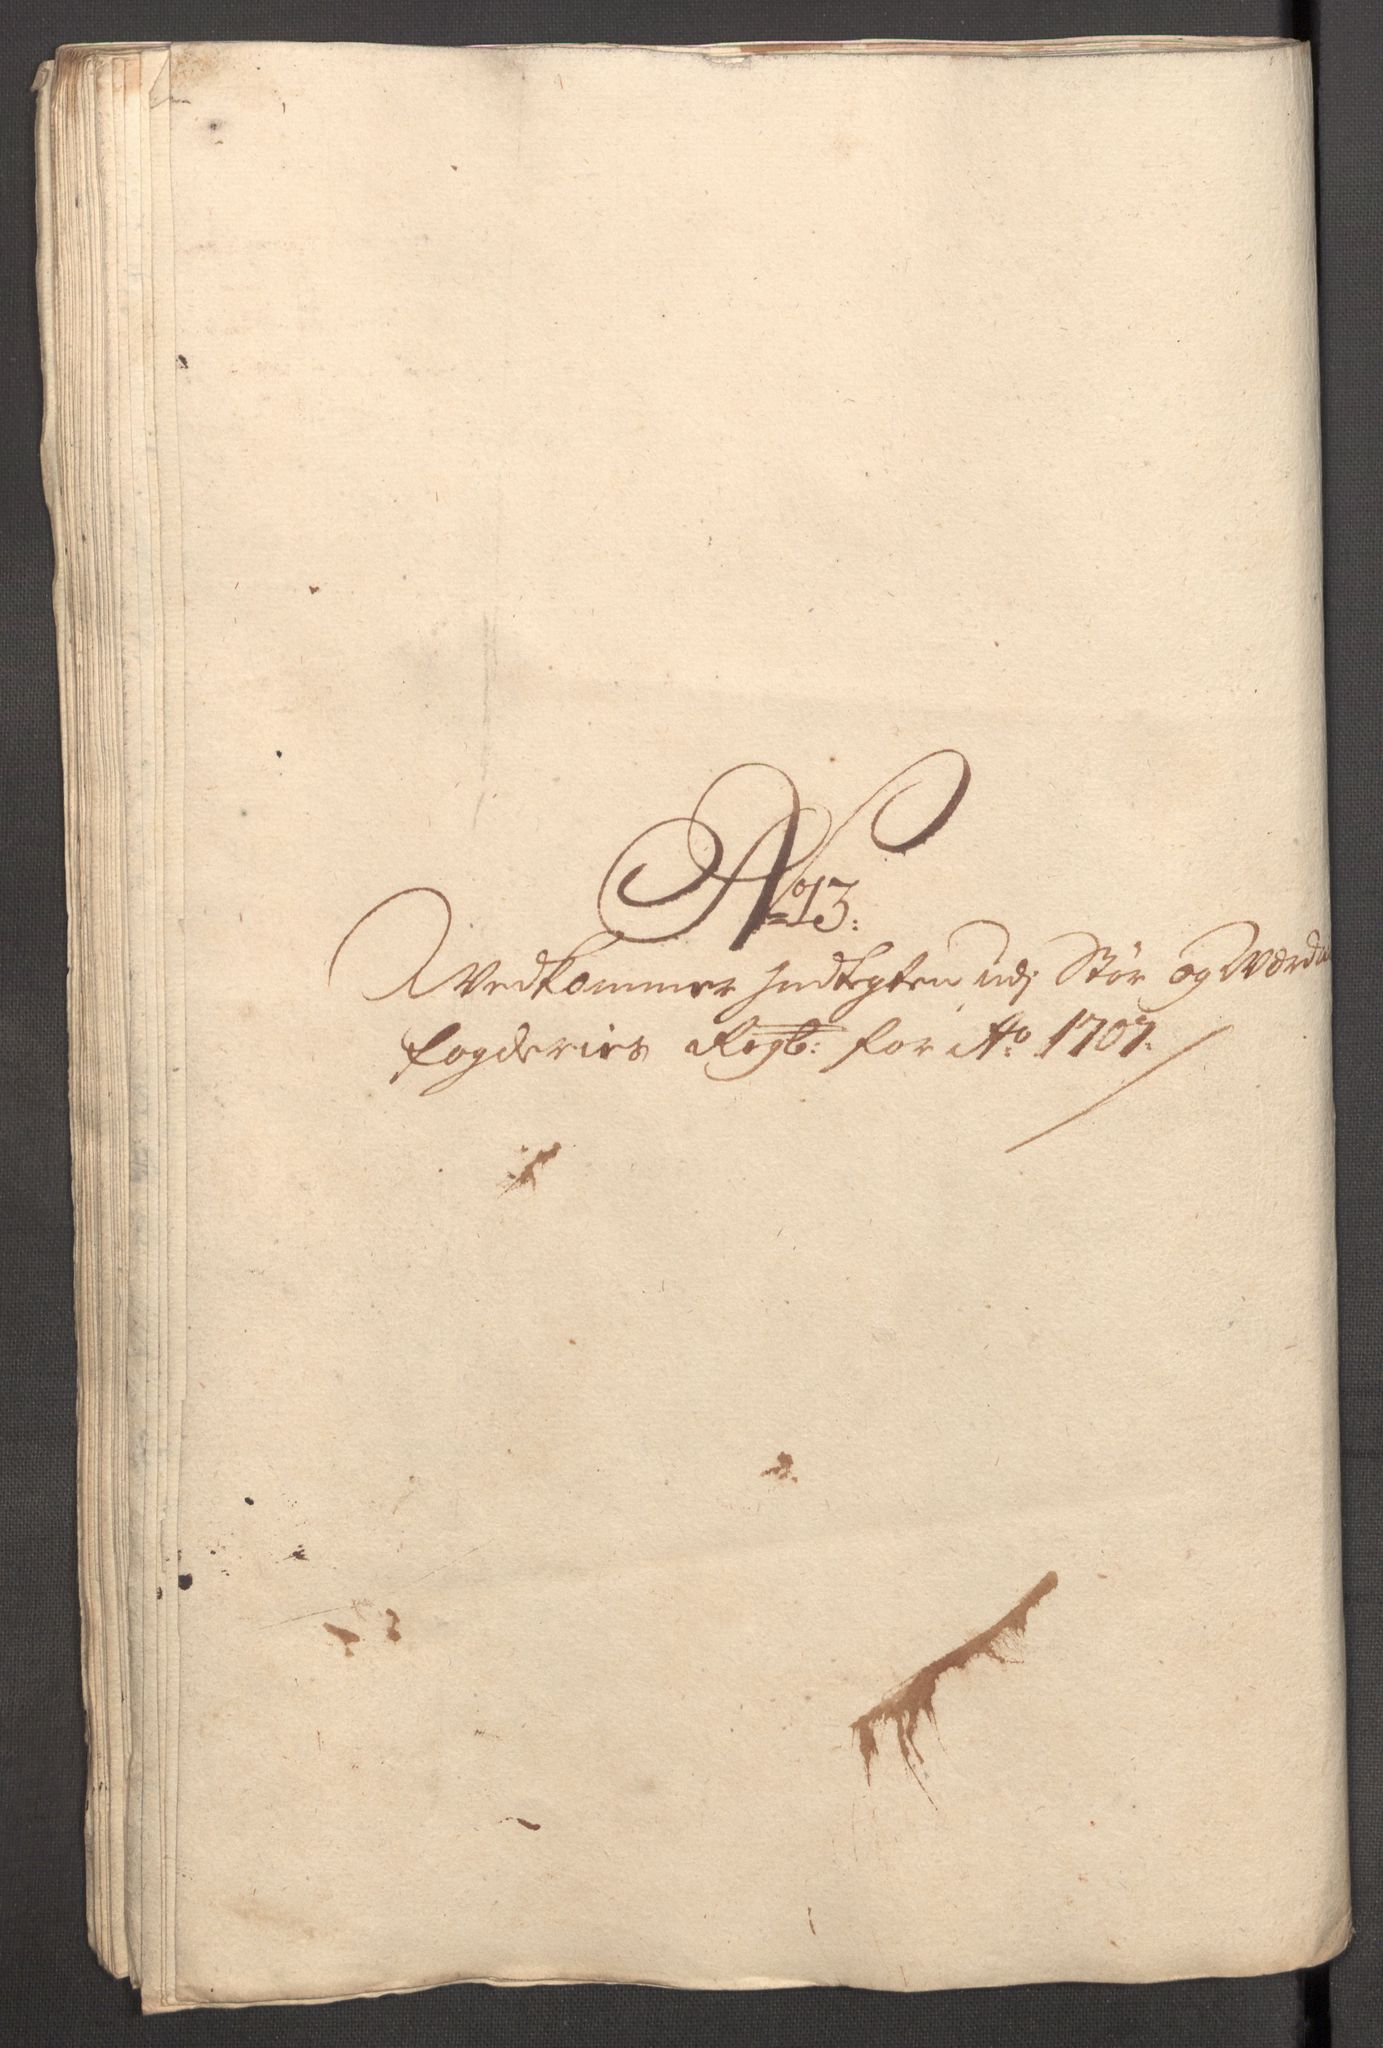 No 13:
Vedkommer Indtegten udj Stør og Værdal
fogderies Regb: for Ao 1707.